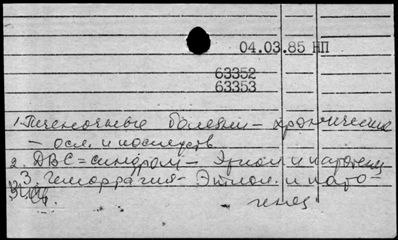 04.03.85 НП
63352
63353
1. Печеночные болезни – хронические
– осл. и последств.
2. ДВС = синдром – Этиол. и патогенез
3. Геморрагия – Этиол. и пато-
генез